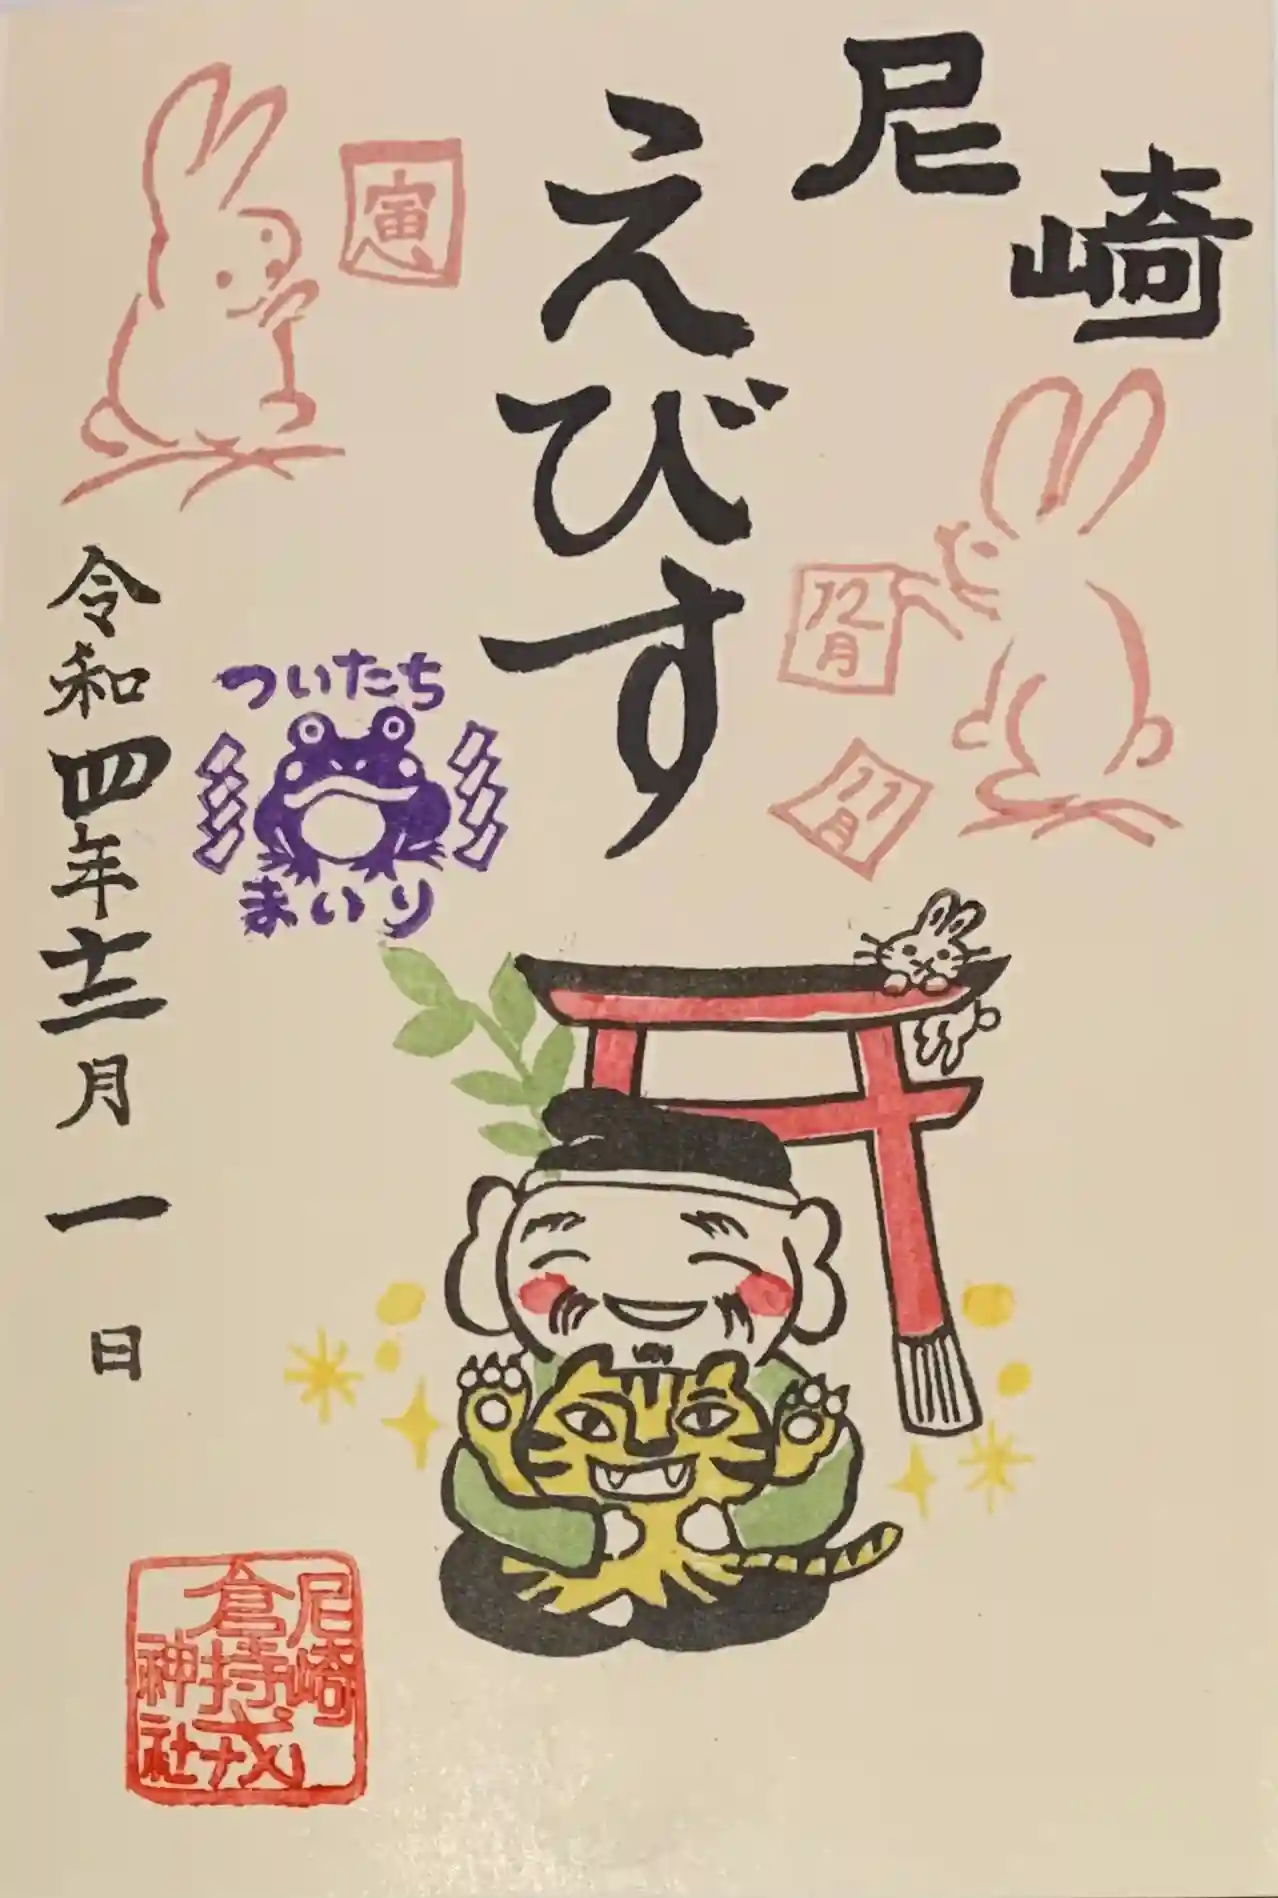 尼崎
えびす
寅
12月
11月
ついたち
まいり
令和四年十二月一日
尼崎
倉持戎
神社